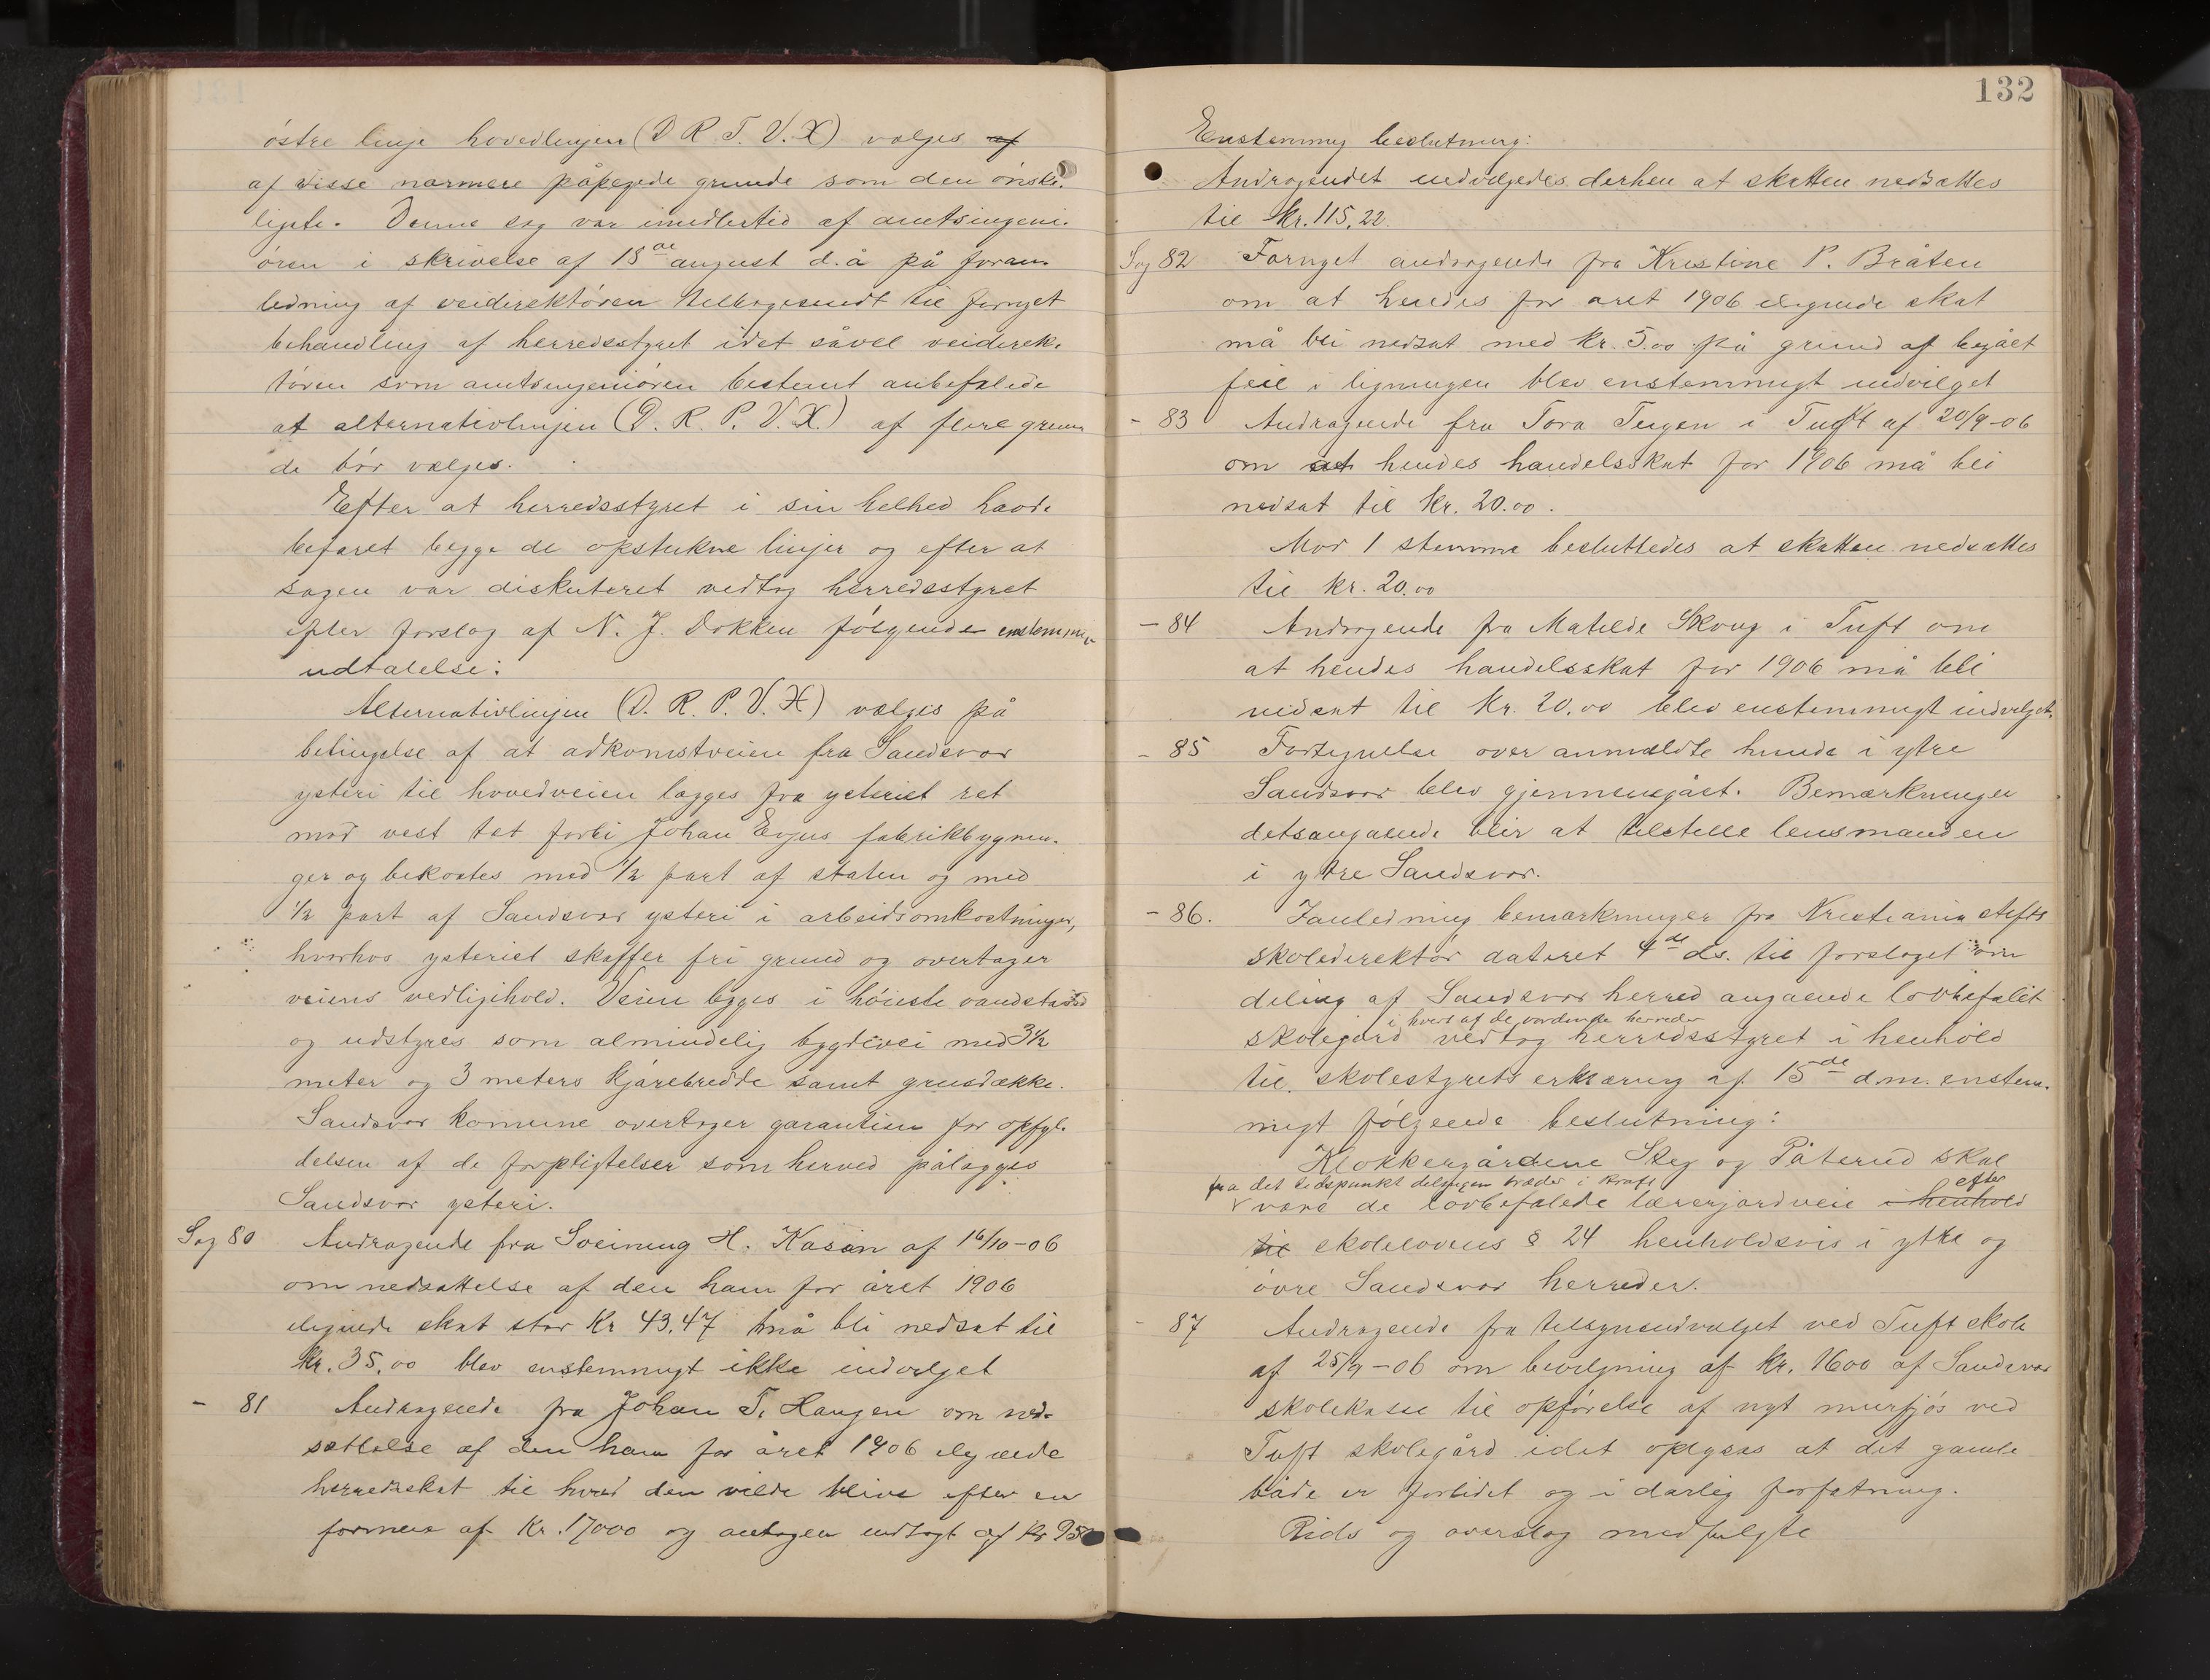 østre linje hovedlinjen (D R. T. V. X) vælges af
af disse nærmere påpegede grunde som den ønske-
ligste. Denne sag var imidlertid af amtsingeni-
øren i skrivelse af 18de august d.å på foran-
ledning af veidirektøren tilbagesendt til fornyet
behandling af herredsstyret idet såvel veidirek-
tøren som amtsingeniøren bestemt anbefalede
at alternativlinjen (D. R. P. V. X.) af flere grun-
de bør vælges.
Efter at herredsstyret i sin helhed havde
befaret begge de opstukne linjer og efter at
sagen var diskuteret vedtog herredsstyret
efter forslag af N. J. Dokken følgende enstemmig
udtalelse:
Alternativlinjen (D. R. P. V. X) vælges på
betingelse af at adkomstveien fra Sandsvær
ysteri til hovedveien lægges fra ysteriet ret
mod vest tæt forbi Johan Evjus fabrikbygnin-
ger og bekostes med 1/2 part af staten og med
1/2 part af Sandsvær ysteri i arbeidsomkostninger,
hvorhos ysteriet skaffer fri grund og overtager
veiens vedligehold. Veien lægges i høieste vandstand
og udstyres som almindelig bygdevei med 3 1/2
meter og 3 meters kjørebredde samt grusdække.
Sandsvær komune overtager garantien for opfyl-
delsen af de forpligtelser som herved pålægges
Sandsvær ysteri.
Sag 80 Andragende fra Sveinung H. Kasin af 16/10-06
om nedsættelse af den ham for året 1906
ilignede skat stor Kr 43,47 må bli nedsat til
Kr. 35,00 blev enstemmigt ikke indvilget
- 81 Andragende fra Johan T. Haugen om ned-
sættelse af den ham for året 1906 ilignede
herredsskat til hvad den vilde blive efter en
formue af Kr. 17000 og antagen indtægt af Kr 950
132
Enstemmig beslutning:
Andragendet indvilgedes derhen at skatten nedsættes
til Kr. 115,22.
Sag 82 Fornyet andragende fra Kristine P. Bråten
om at hendes for året 1906 ilignede skat
må bli nedsat med Kr. 5.00 på grund af begået
feil i ligningen blev enstemmigt indvilget
- 83 Andragende fra Tora Teigen i Tuft af 20/9-06
om at hendes handelsskat for 1906 må bli
nedsat til Kr. 20.00.
Mod 1 stemme besluttedes at skatten nedsættes
til Kr. 20.00
- 84 Andragende fra Matilde Skoug i Tuft om
at hendes handelsskat for 1906 må bli
nedsat til Kr. 20,00 blev enstemmigt indvilget.
- 85 Fortegnelse over anmeldte hunde i ytre
Sandsvær blev gjennemgået. Bemærkninger
detsangaaende blir at tilstille lensmanden
i ytre Sandsvær.
- 86. I anledning bemærkninger fra Kristiania stifts
skoledirektør dateret 4de ds. til forslaget om
deling af Sandsvær herred angaaende lovbefalet
i hvert af de vordende herreder
skolegård vedtog herredsstyret i henhold
til skolestyrets erklæring af 15de d.m. enstem-
migt følgende beslutning:
Klokkergårdene Steg og Påterud skal
fra det tidspunkt delingen træder i kraft efter
være de lovbefalede lærerjordveie i henhold
til skolelovens § 24 henholdsvis i ytre og
øvre Sandsvær herreder.
- 87 Andragende fra tilsynsudvalget ved Tuft skole
af 25/9-06 om bevilgning af Kr. 1600 af Sandsvær
skolekasse til opførelse af nyt murfjøs ved
Tuft skolegård idet oplyses at det gamle
både er forlidet og i dårlig forfatning.
Rids og overslag medfulgte